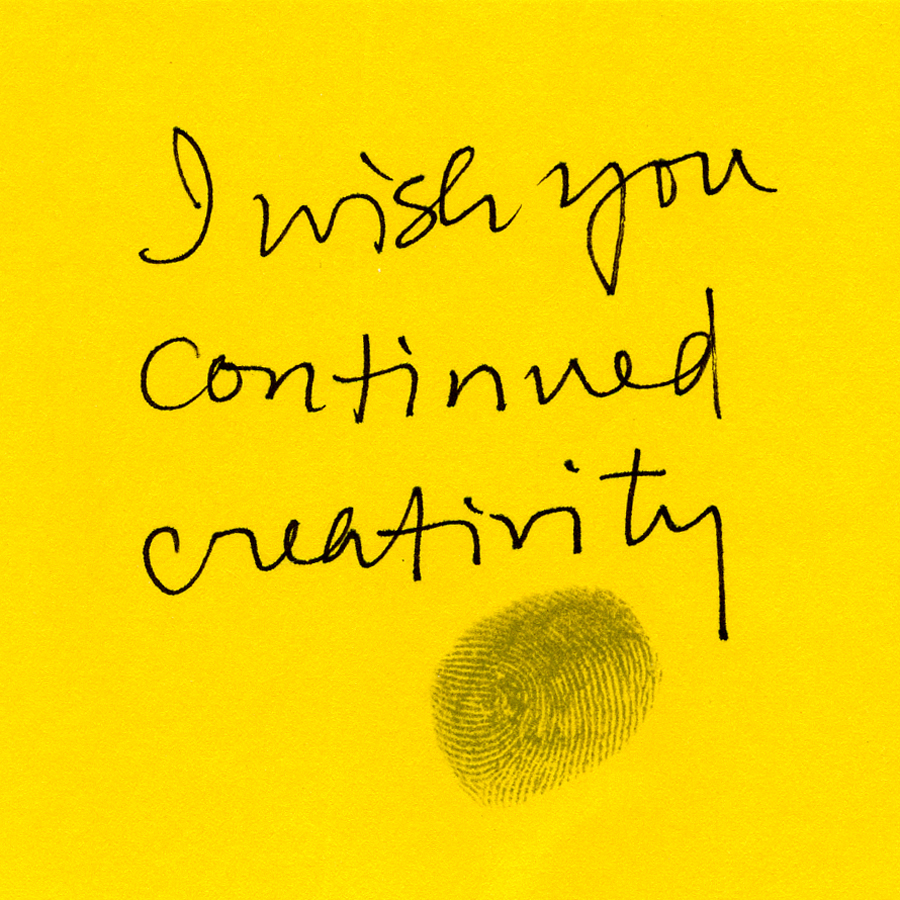 I wish you
continued
creativity